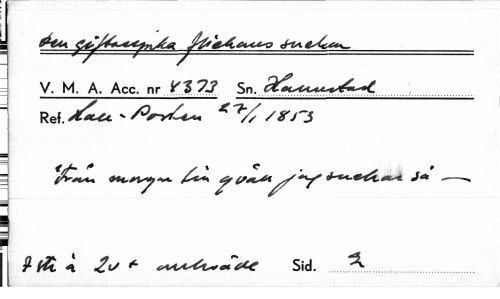 Den giftassjuka flickans suckan
V. M. A. Acc. nr 4373 Sn. Halmstad
Ref. Hall-Posten 27/1 1853
Från morgon till qväll jag suckar så —
7 str à 2v + omkväde Sid. 2